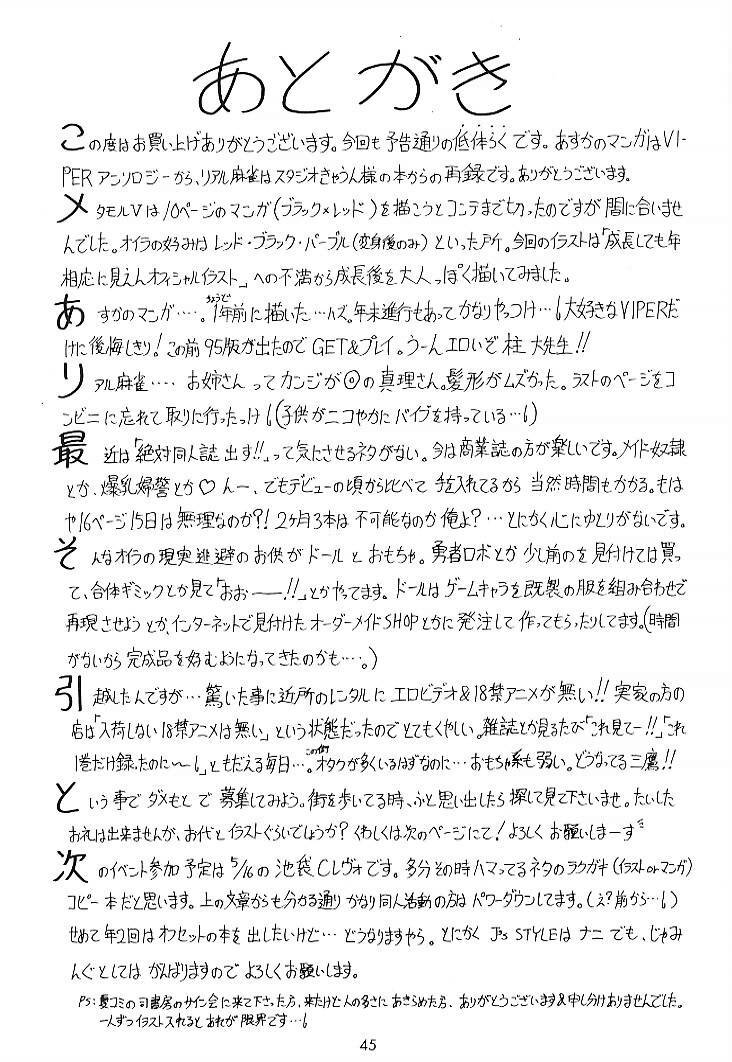 あとがき
この度はお買い上げありがとうございます。今回も予告通りの低体らくです。あすかのマンガはVI-
PERアンソロジーから、リアル麻雀はスタジオきゃうん様の本からの再録です。ありがとうございます。
メタモルVは10ページのマンガ(ブラック×レッド)を描こうとコンテまで切ったのですが間に合いませ
んでした。オイラの好みはレッド・ブラック・パープル(変身後のみ)といった所。今回のイラストは「成長しても年
相応に見えんオフィシャルイラスト」への不満から成長後を大人っぽく描いてみました。
あすかのマンガ‥‥。ちょうど1年前に描いた…ハズ。年末進行もあってかなりやっつけ…6大好きなVIPERだ
けに後悔しきり!この前95版が出たのでGET&プレイ。うーんエロいぞ柱大先生!!
リアル麻雀‥‥お姉さんってカンジが◎の真理さん。髪形がムズかった。ラストのページをコ
ンビニに忘れて取りに行ったっけ6(子供がニコやかにバイブを持っている…6)
最近は「絶対同人誌出す!!」って気にさせるネタがない。今は商業誌の方が楽しいです。メイド奴隷
とか、爆乳婦警とか♡んー、でもデビューの頃から比べて手入れてるから当然時間もかかる。もは
や16ページ15日は無理なのか?!2ヶ月3本は不可能なのか俺よ?…とにかく心にゆとりがないです。
そんなオイラの現実逃避のお供がドールとおもちゃ。勇者ロボとか少し前のを見付けては買っ
て、合体ギミックとか見て「おおー!!」とかやってます。ドールはゲームキャラを既製の服を組み合わせで
再現させようとか、インターネットで見付けたオーダーメイドSHOPとかに発注して作ってもらったりしてます。(時間
がないから完成品を好むようになってきたのかも‥‥。)
引越したんですが…驚いた事に近所のレンタルにエロビデオ&18禁アニメが無い!!実家の方の
店は「入荷しない18禁アニメは無い」という状態だったのでとてもくやしい。雑誌とか見るたび「これ見てー!!」「これ
1巻だけ録ったのに〜6」ともだえる毎日…。この街オタクが多くいるはずなのに…おもちゃ系も弱い。どうなってる三鷹!!
という事でダメもとで募集してみよう。街を歩いてる時、ふと思い出したら探して見て下さいませ。たいした
お礼は出来ませんが、お代とイラストぐらいでしょうか?くわしくは次のページにて!よろしくお願いしまーす
次のイベント参加予定は5/16の池袋Cレヴォです。多分その時ハマってるネタのラクガキ(イラストorマンガ)
コピー本だと思います。上の文章からも分かる通りかなり同人活動の方はパワーダウンしてます。(え?前から…6)
せめて年2回はオフセットの本を出したいけど…どうなりますやら。とにかくJ's STYLEはナニでも、じゃみ
んぐとしてはがんばりますのでよろしくお願いします。
PS:夏コミの司書房のサイン会に来て下さった方、来たけど人の多さにあきらめた方、ありがとうございます&申し分けありませんでした。
一人ずつイラスト入れるとあれが限界です…6
45